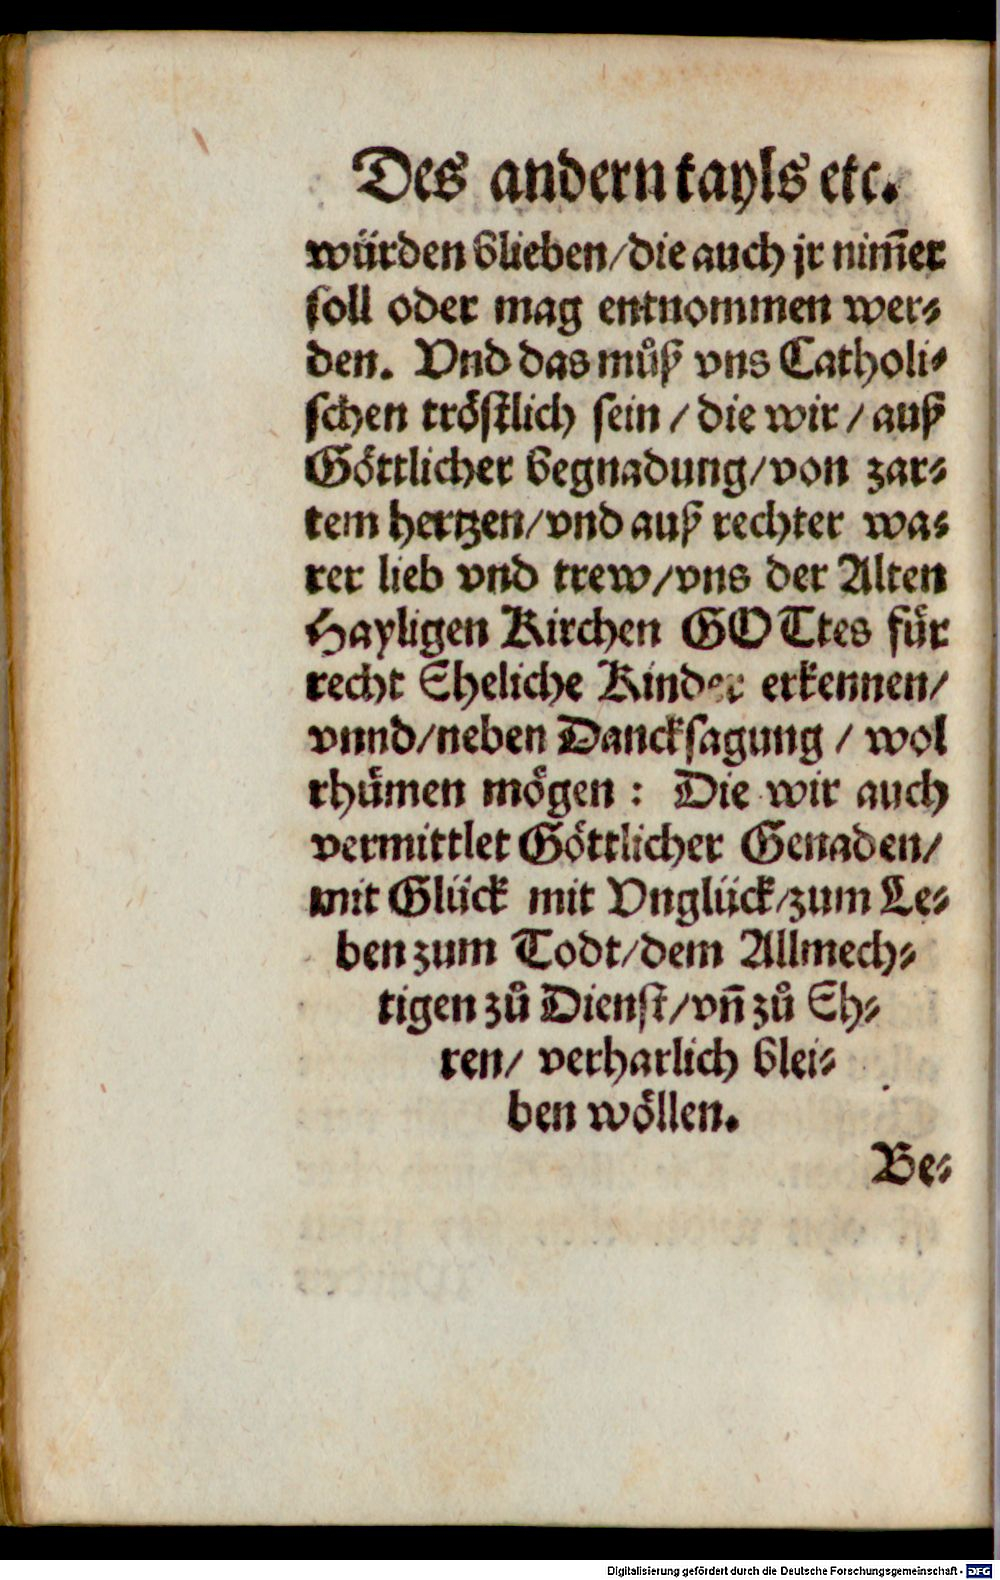 Des andern tayls etc.
würden blieben/die auch jr nim̃er
soll oder mag entnommen wer⸗
den. Vnd das můß vns Catholi⸗
schen tröstlich sein / die wir / auß
Göttlicher begnadung/von zar⸗
tem hertzen/vnd auß rechter wa⸗
rer lieb vnd trew/vns der Alten
Hayligen Kirchen GOTtes für
recht Eheliche Kinder erkennen/
vnnd/neben Dancksagung / wol
rhůmen mögen : Die wir auch
vermittlet Göttlicher Genaden/
mit Glück mit Vnglück/zum Le⸗
ben zum Todt/dem Allmech⸗
tigen zů Dienst/vñ zů Eh⸗
ren/ verharlich blei⸗
ben wöllen.
Be⸗
Digitalisierung gefördert durch die Deutsche Forschungsgemeinschaft - DFG